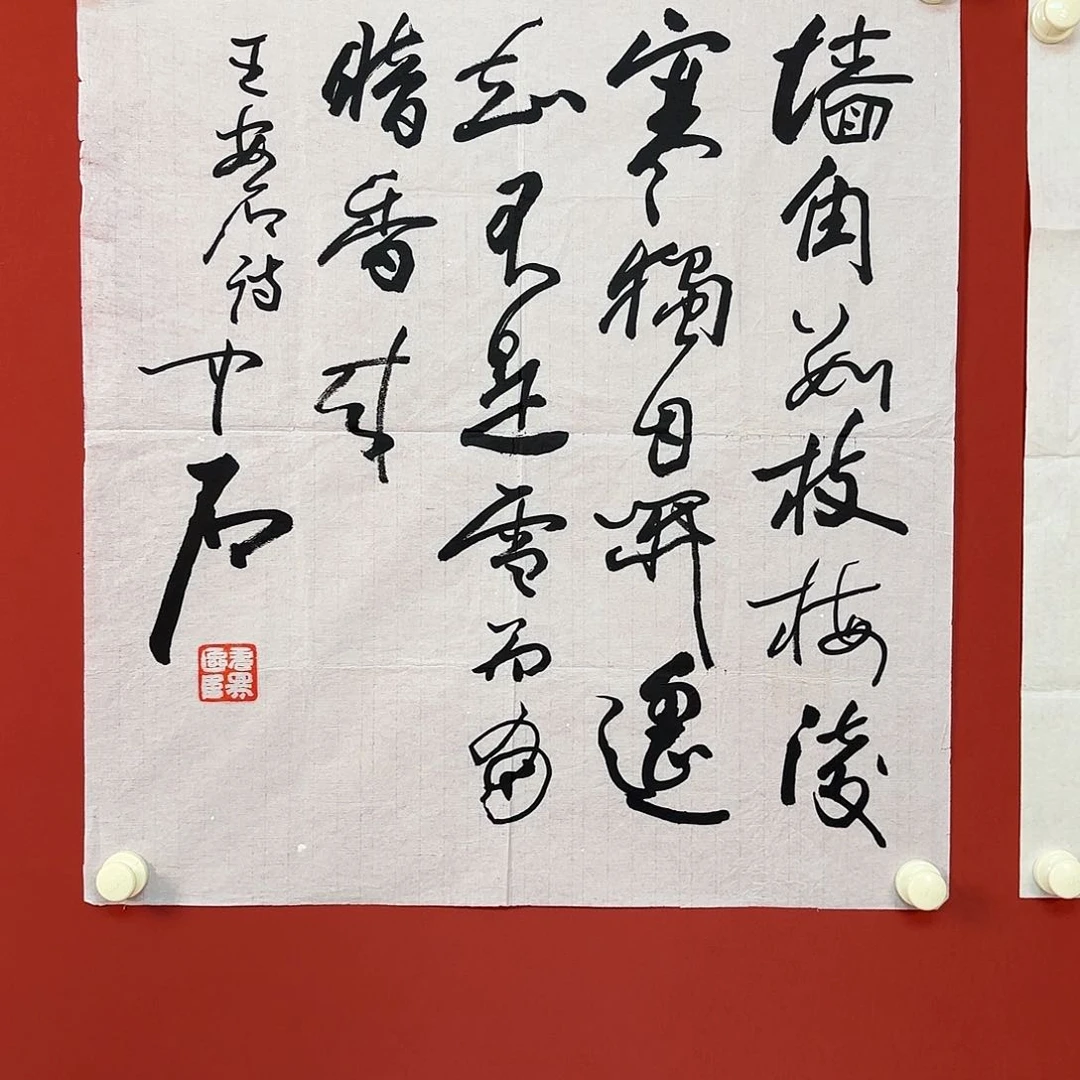 墙角數枝梅凌
寒獨自開遥
知不是雪為有
暗香来
王安石詩
中石